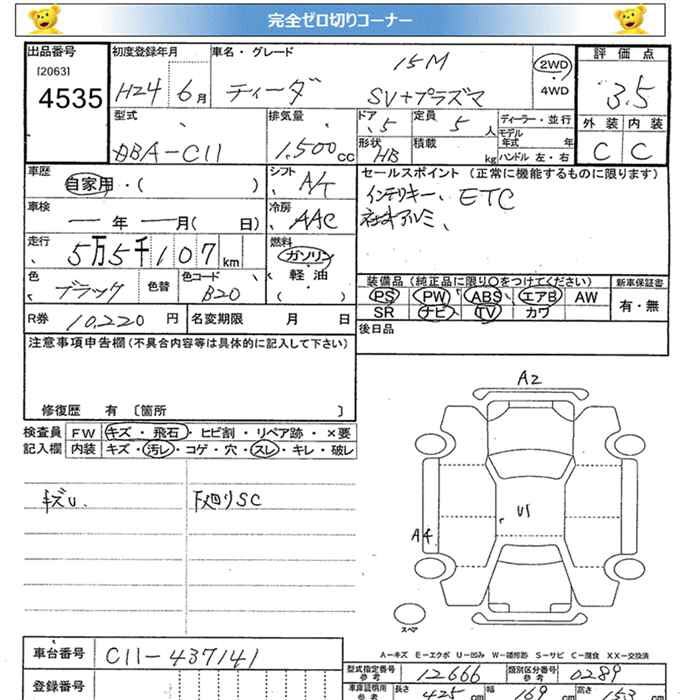 完全ゼロ切りコーナー
出品番号 初度登録年月 車名・グレード 15M 2WD・4WD 評価点
[2063]
4535 H24 6月 ティーダ SV+プラズマ 3.5
型式 排気量 ドア 5 定員 5人 ディーラー・並行 外装 内装
DBA-C11 1,500cc 形状 HB 積載 kg モデル年式 年 ハンドル 左・右 C C
車歴 自家用・( ) シフト A/T セールスポイント (正常に機能するものに限ります)
インテリキー、ETC
車検 ー年ー月( 日) 冷房 AAC 社外アルミ、
走行 5万5千107km 燃料 ガソリン・軽油 ( )
色 ブラック 色替 色コード B20 装備品(純正品に限り○をつけてください) 新車保証書
PS PW ABS エアB AW 有・無
R券 10,220円 名変期限 月 日 SR ナビ TV カワ
注意事項申告欄(不具合内容等は具体的に記入して下さい) 後日品
修復歴 有 〔箇所 〕
検査員 FW キズ・飛石・ヒビ割・リペア跡・×要
記入欄 内装 キズ・汚レ・コゲ・穴・スレ・キレ・破レ
キズU. 下廻りSC
A2
U1
A4
スペア
A-キズ E-エクボ U-凹み W-補修跡 S-サビ C-腐食 XX-交換済
車台番号 C11-437141
型式指定番号 参考 12666 類別区分番号 参考 0289
登録番号 車庫証明用 参考 長さ 425cm 幅 169cm 高さ 153cm